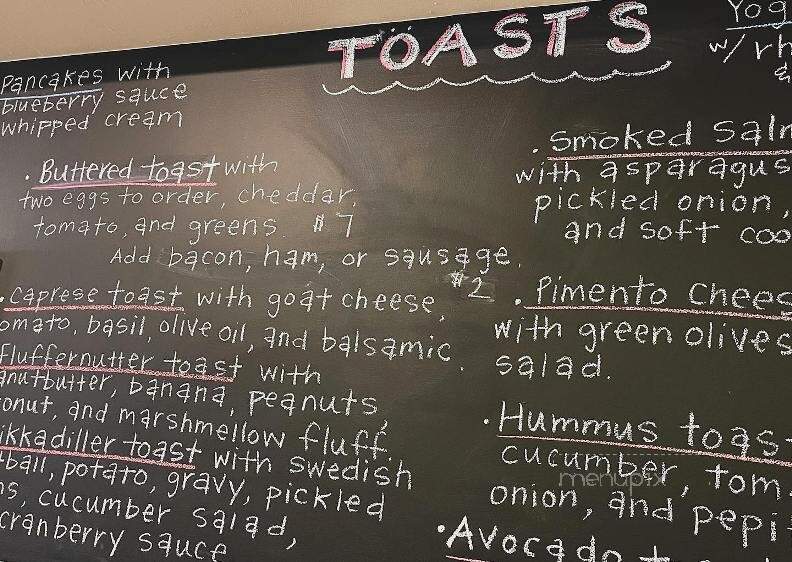 TOASTS
Pancakes with
blueberry sauce
whipped cream
. Buttered toast with
two eggs to order, cheddar,
tomato, and greens. $7
Add bacon, ham, or sausage.
$2
. caprese toast with goat cheese,
omato, basil, olive oil, and balsamic.
Fluffernutter toast with
anutbutter, banana, peanuts,
onut, and marshmellow fluff.
ikkadiller toast with swedish
tball, potato, gravy, pickled
ns, cucumber salad,
cranberry sauce
Yog
w/ rh
&
. Smoked Saln
with asparagus
pickled onion,
and soft coo
. Pimento Chees
with green olives
salad.
. Hummus toas
cucumber, tom
onion, and pepi
. Avocado t
menupix